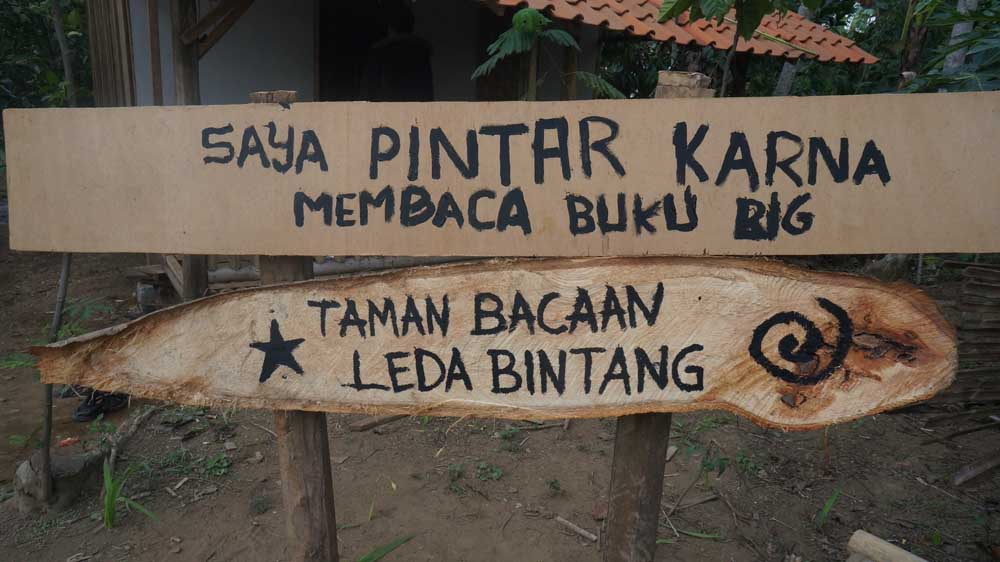 SAYA PINTAR KARNA
MEMBACA BUKU BIG
TAMAN BACAAN
LEDA BINTANG